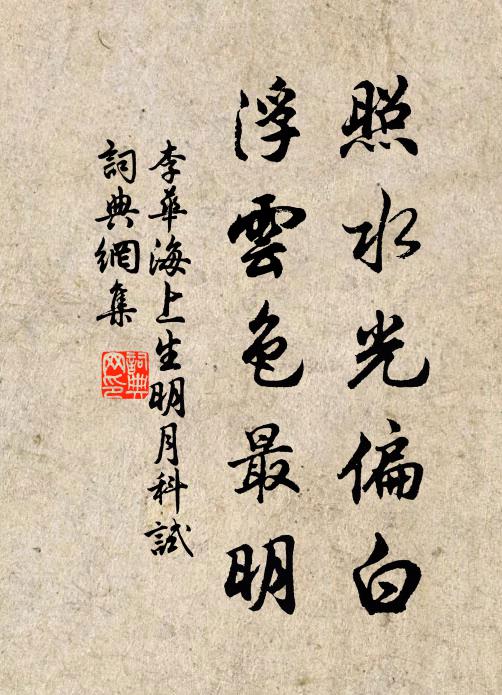 照水光偏白
浮雲色最明
李華海上生明月科試
詞典網集
詞典網印